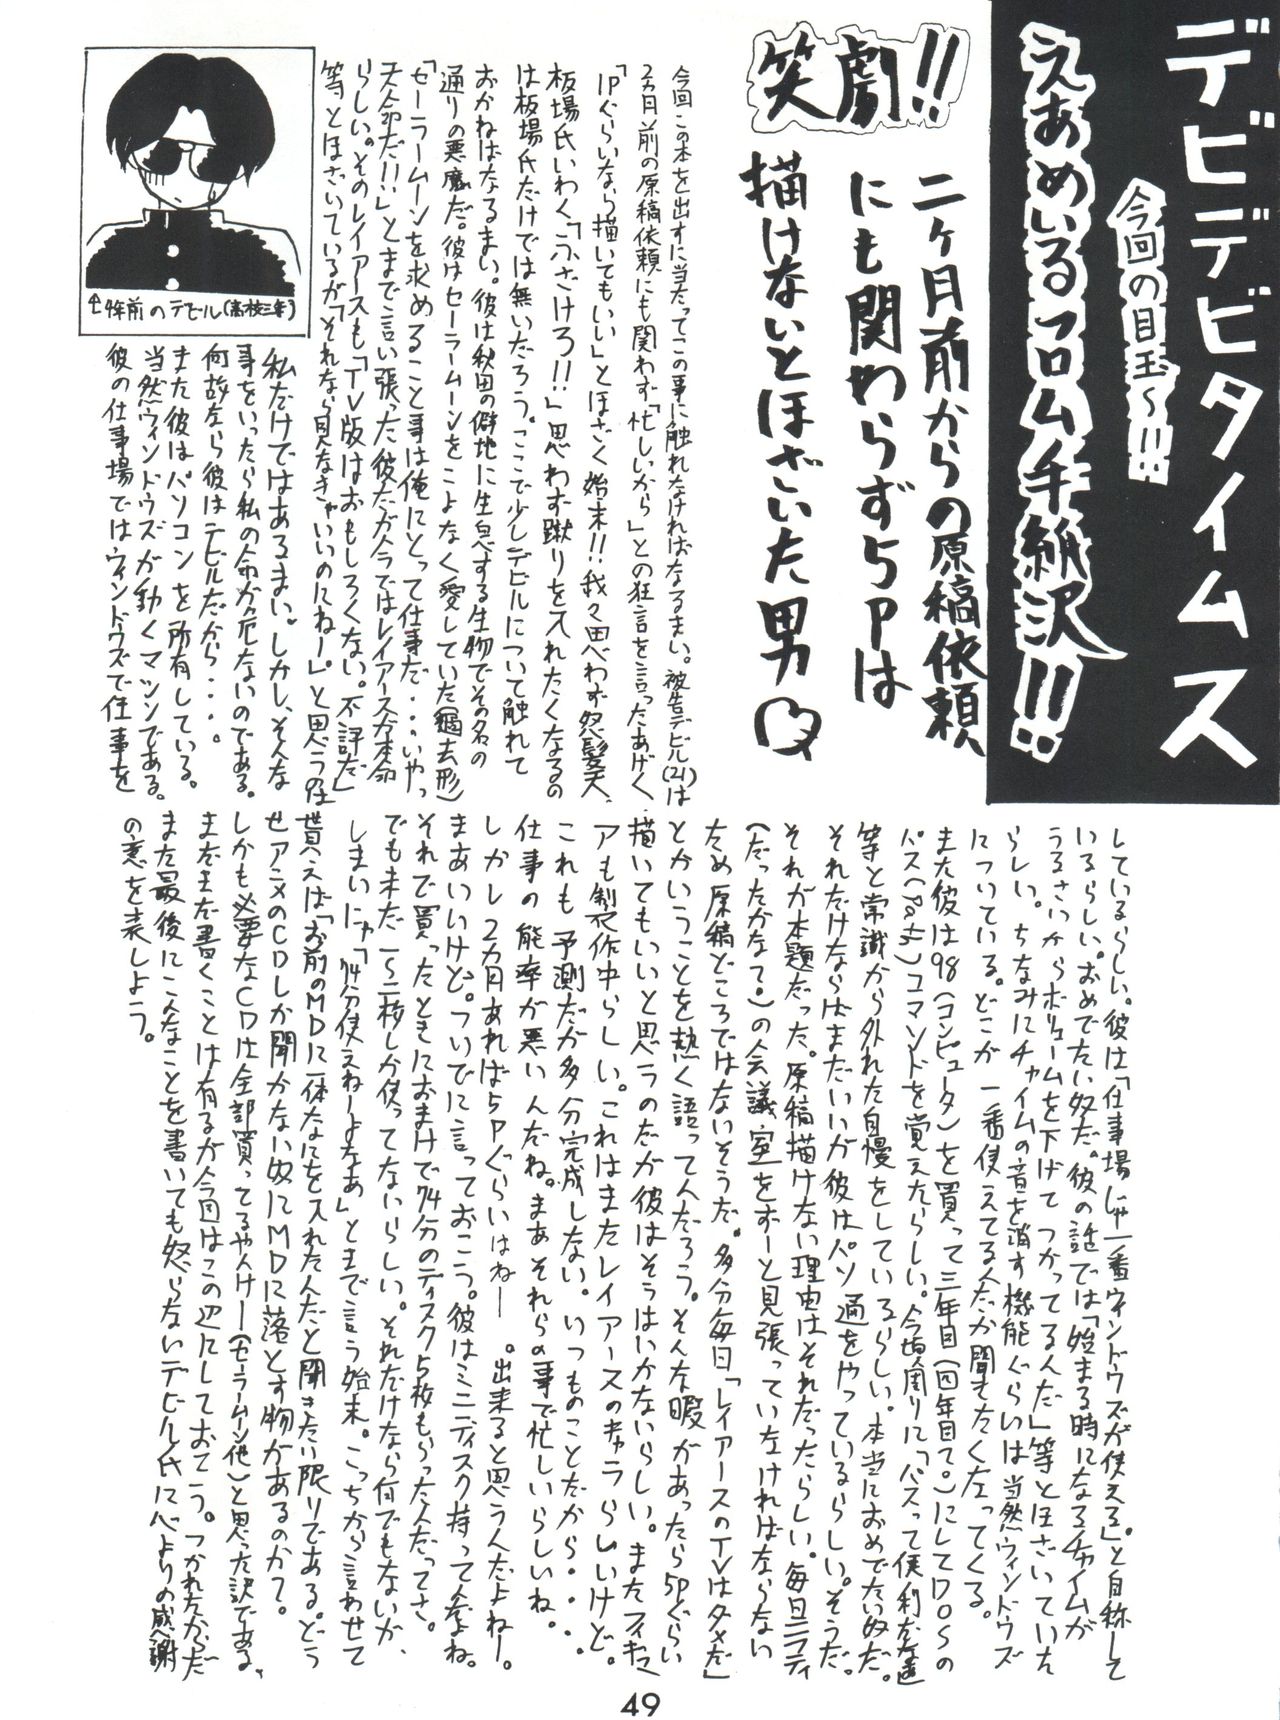 デビデビタイムス
今回の目玉〜!!
えあめいるフロム手納沢!!
笑劇!!
二ヶ月前からの原稿依頼
にも関わらず5Pは
描けないとほざいた男
今回この本を出すに当たってこの事に触れなければなるまい。被告デビル(21)は
2ヵ月前の原稿依頼にも関わず「忙しいから」との狂言を言ったあげく
「1Pぐらいなら描いてもいい」とほざく始末!!我々思わず怒髪天、
板場氏いわく「ふざけろ!!」思わず蹴りを入れたくなるの
は板場氏だけでは無いだろう。ここで少しデビルについて触れて
おかねばなるまい。彼は秋田の僻地に生息する生物でその名の
通りの悪魔だ。彼はセーラームーンをこよなく愛していた(過去形)
「セーラームーンを求めること事は俺にとって仕事だ・・・いやっ
天命だ!!」とまで言い張った彼だが今ではレイアースが本命
らしい。そのレイアースも「TV版はおもしろくない。不評だ」
等とほざいているが「それなら見なきゃいいのにねー」と思うのは
私だけではあるまい。しかし、そんな
事をいったら私の命が危ないのである。
何故なら彼はデビルだから・・・。
また彼はパソコンを所有している。
当然ウィンドウズが動くマシンである。
彼の仕事場ではウィンドウズで仕事を
↑4年前のデビル(高校三年)
しているらしい。彼は「仕事場じゃ一番ウィンドウズが使える」と自称して
いるらしい。おめでたい奴だ。彼の話では「始まる時になるチャイムが
うるさいからボリュームを下げてつかってるんだ」等とほざいていた
らしい。ちなみにチャイムの音を消す機能ぐらいは当然ウィンドウズ
についている。どこが一番使えてるんだか聞きたくなってくる。
また彼は98(コンピュータ)を買って三年目(四年目?)にしてDOSの
パス(Path)コマンドを覚えたらしい。今頃周りに「パスって便利だな」
等と常識から外れた自慢をしているらしい。本当におめでたい奴だ。
それだけならばまだいいが彼はパソ通をやっているらしい。そうだ。
それが本題だった。原稿描けない理由はそれだったらしい。毎日ニフティ
(だったかな?)の会議室をずーと見張っていなければならない
ため原稿どころではないそうだ。多分毎日「レイアースのTVはダメだ」
とかいうことを熱く語ってんだろう。そんな暇があったら5Pぐらい
描いてもいいと思うのだが彼はそうはいかないらしい。またフィギュ
アも製作中らしい。これはまたレイアースのキャラらしいけど。
これも予測だが多分完成しない。いつものことだから・・・。
仕事の能率が悪いんだね。まあそれらの事で忙しいらしいね。
しかし2カ月あれば5Pぐらいはねー。出来ると思うんだよねー。
まあいいけど。ついでに言っておこう。彼はミニディスク持ってんだよね。
それで買ったときにおまけで74分のディスク5枚もらったんだってさ。
でも未だ一〜二枚しか使ってないらしい。それだけなら何でもないが、
しまいにゃ「74分使えねーよなあ」とまで言う始末。こっちから言わせて
貰えば「お前のMDに一体なにを入れたんだと聞きたい限りである。どう
せアニメのCDしか聞かない奴にMDに落とす物があるのか?
しかも必要なCDは全部買ってるやんけー(セーラームーン他)と思った訳である。
まだまだ書くことは有るが今回はこの辺にしておこう。つかれたからだ
また最後にこんなことを書いても怒らないデビル氏に心よりの感謝
の意を表しよう。
49